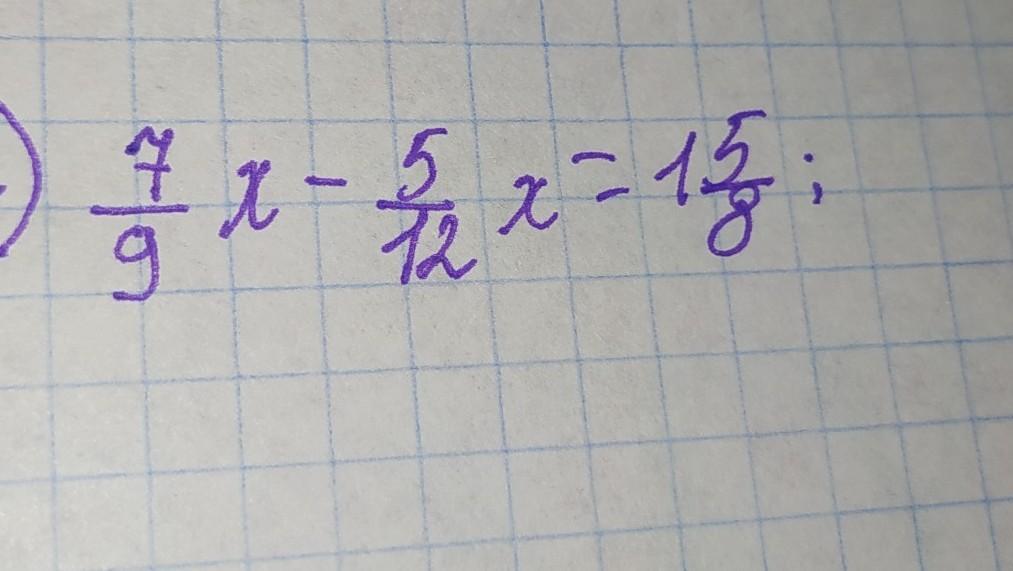 ) 7/9 x - 5/12 x = 1 5/8 ;